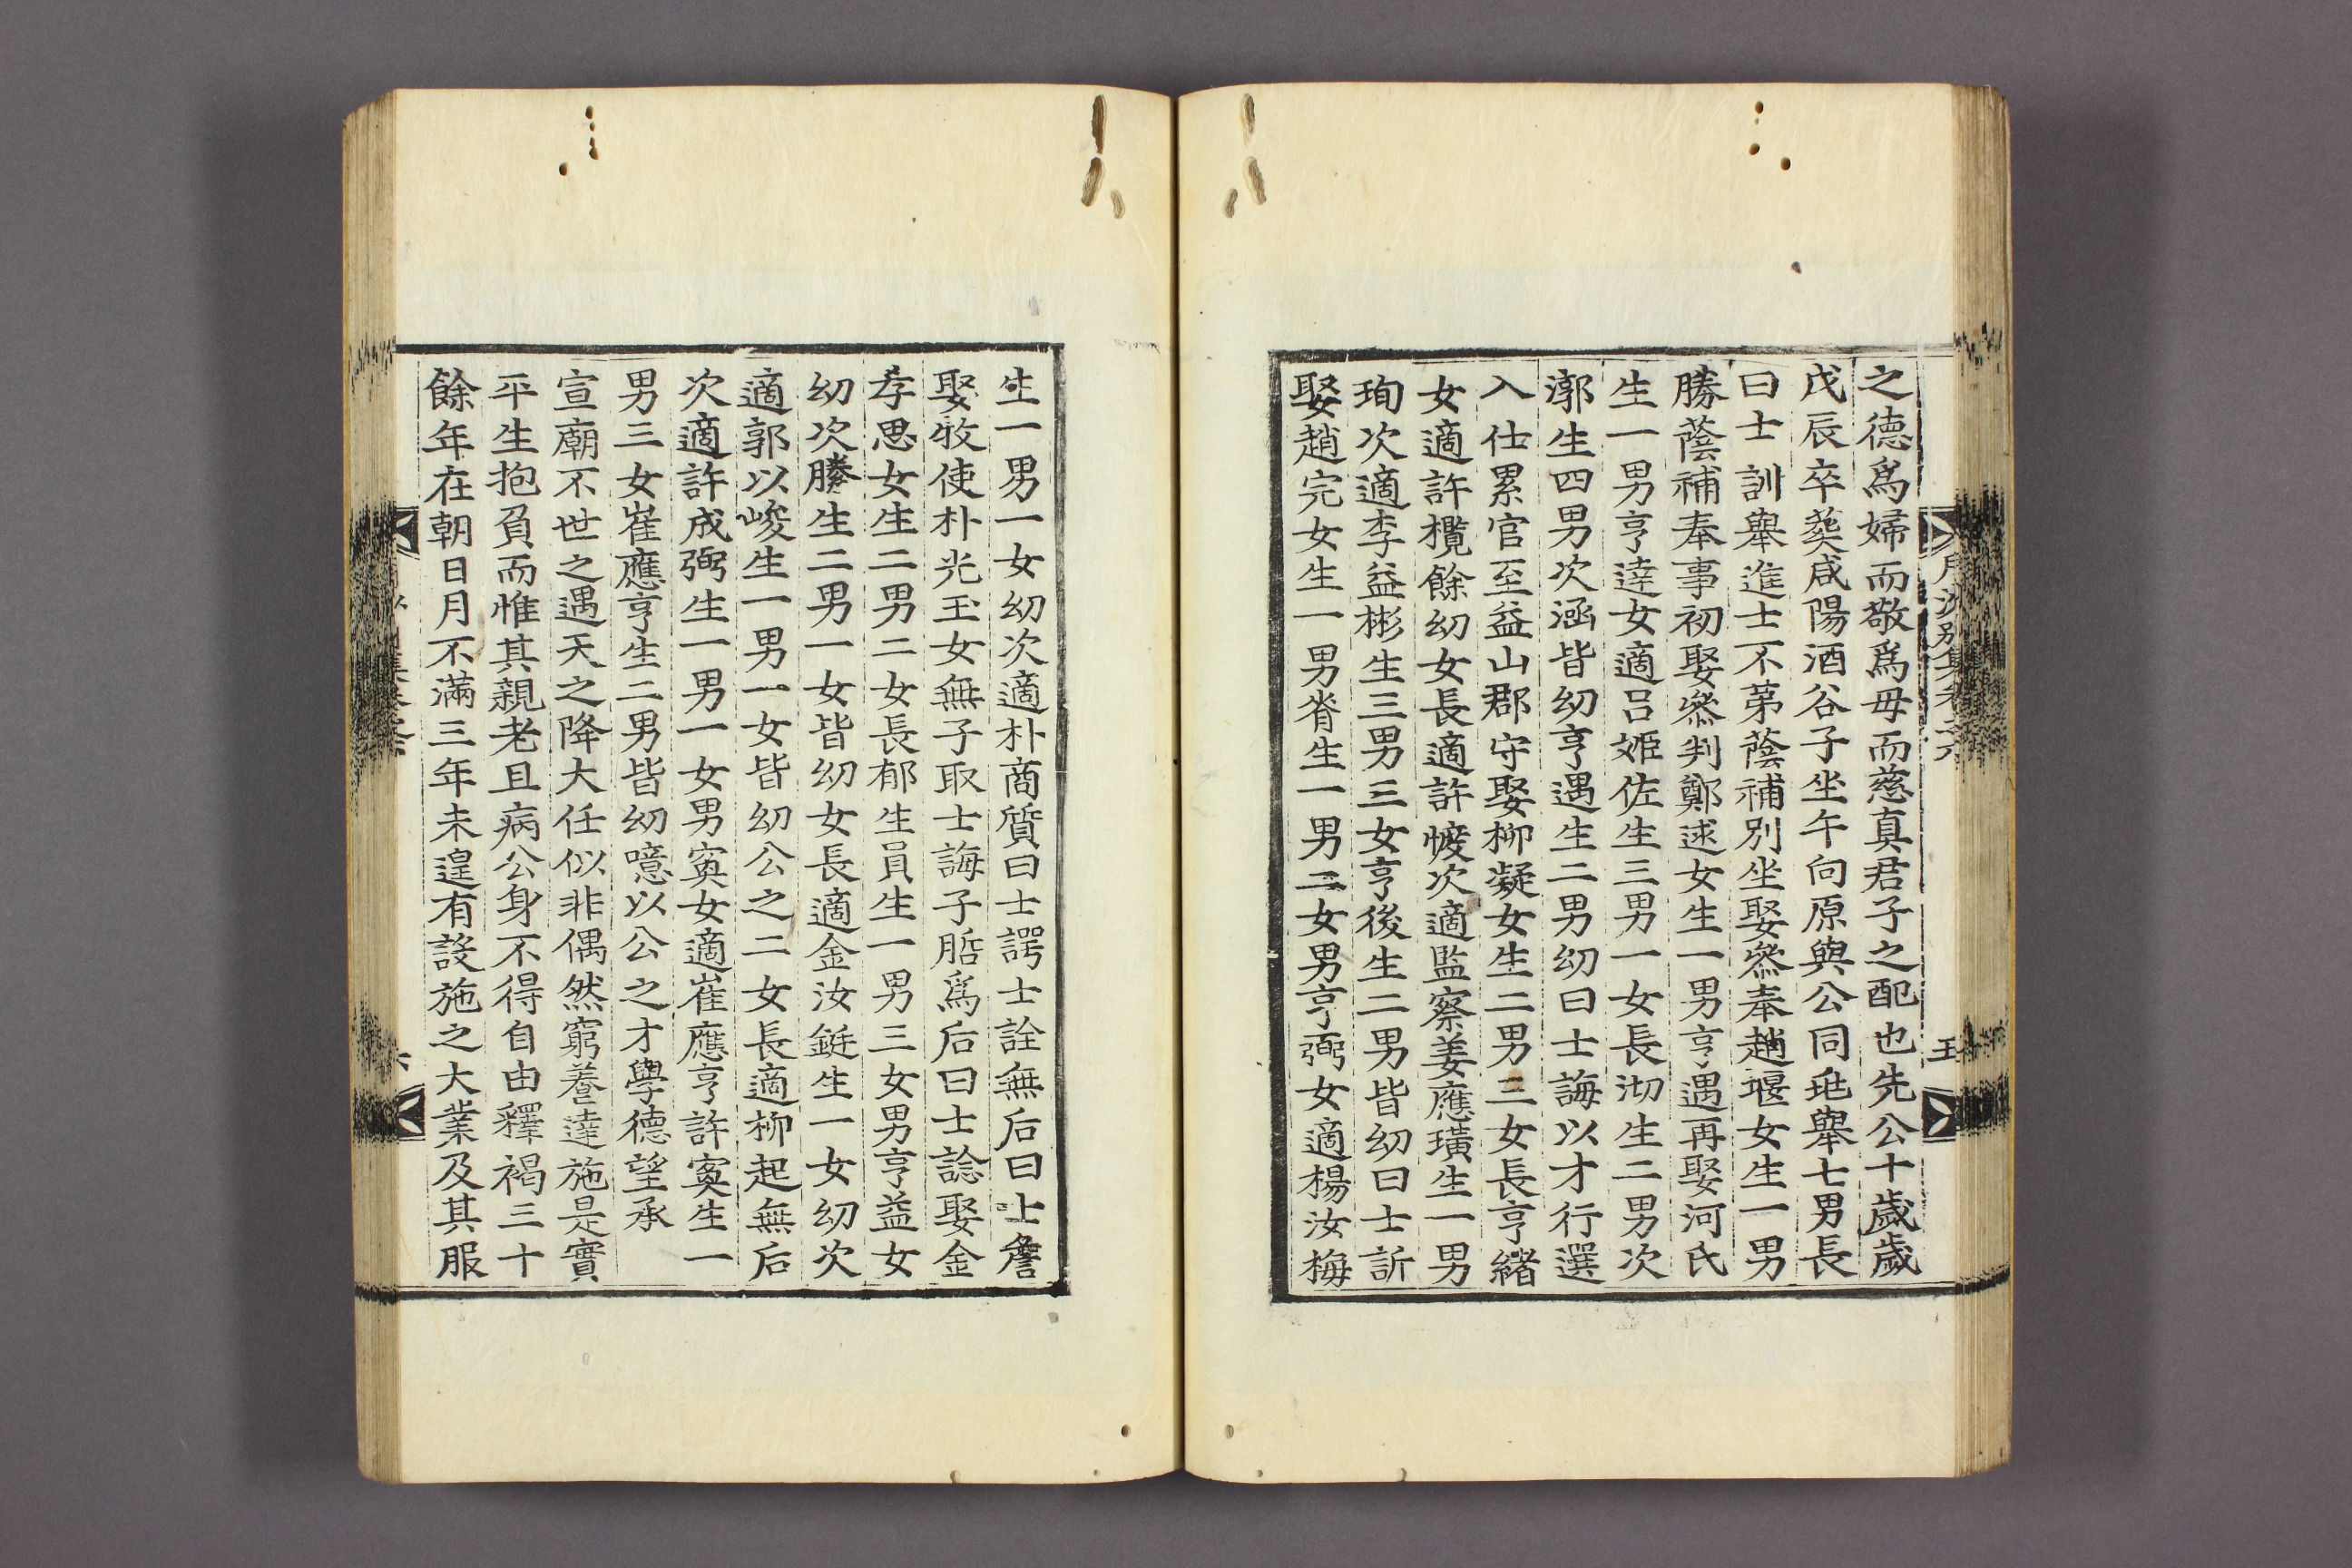 之德爲婦而敬爲母而慈真君子之配也先公十歲歲
戊辰卒葬咸陽酒谷子坐午向原與公同兆舉七男長
曰士訓舉進士不第蔭補別坐娶叅奉趙堰女生一男
勝蔭補奉事初娶叅判鄭逑女生一男亨遇再娶河氏
生一男亨達女適呂姬佐生三男一女長沏生二男次
漷生四男次涵皆幼亨遇生二男幼曰士誨以才行選
入仕累官至益山郡守娶柳凝女生二男三女長亨緒
女適許欖餘幼女長適許㤞次適監察姜應璜生一男
珣次適李益彬生三男三女亨後生二男皆幼曰士訢
娶趙完女生一男脊生一男二女男亨弼女適楊汝梅
月沙別集卷之六
五
生一男一女幼次適朴商質曰士諤士詮無后曰士詹
娶牧使朴光玉女無子取士誨子䏽爲后曰士諗娶金
孝思女生二男二女長郁生員生一男三女男亨益女
幼次騰生二男一女皆幼女長適金汝鋌生一女幼次
適郭以峻生一男一女皆幼公之二女長適柳起無后
次適許成弼生一男一女男寏女適崔應亨許寏生一
男三女崔應亨生二男皆幼噫以公之才學德望承
宣廟不世之遇天之降大任似非偶然窮養達施是實
平生抱負而惟其親老且病公身不得自由釋褐三十
餘年在朝日月不滿三年未遑有設施之大業及其服
六